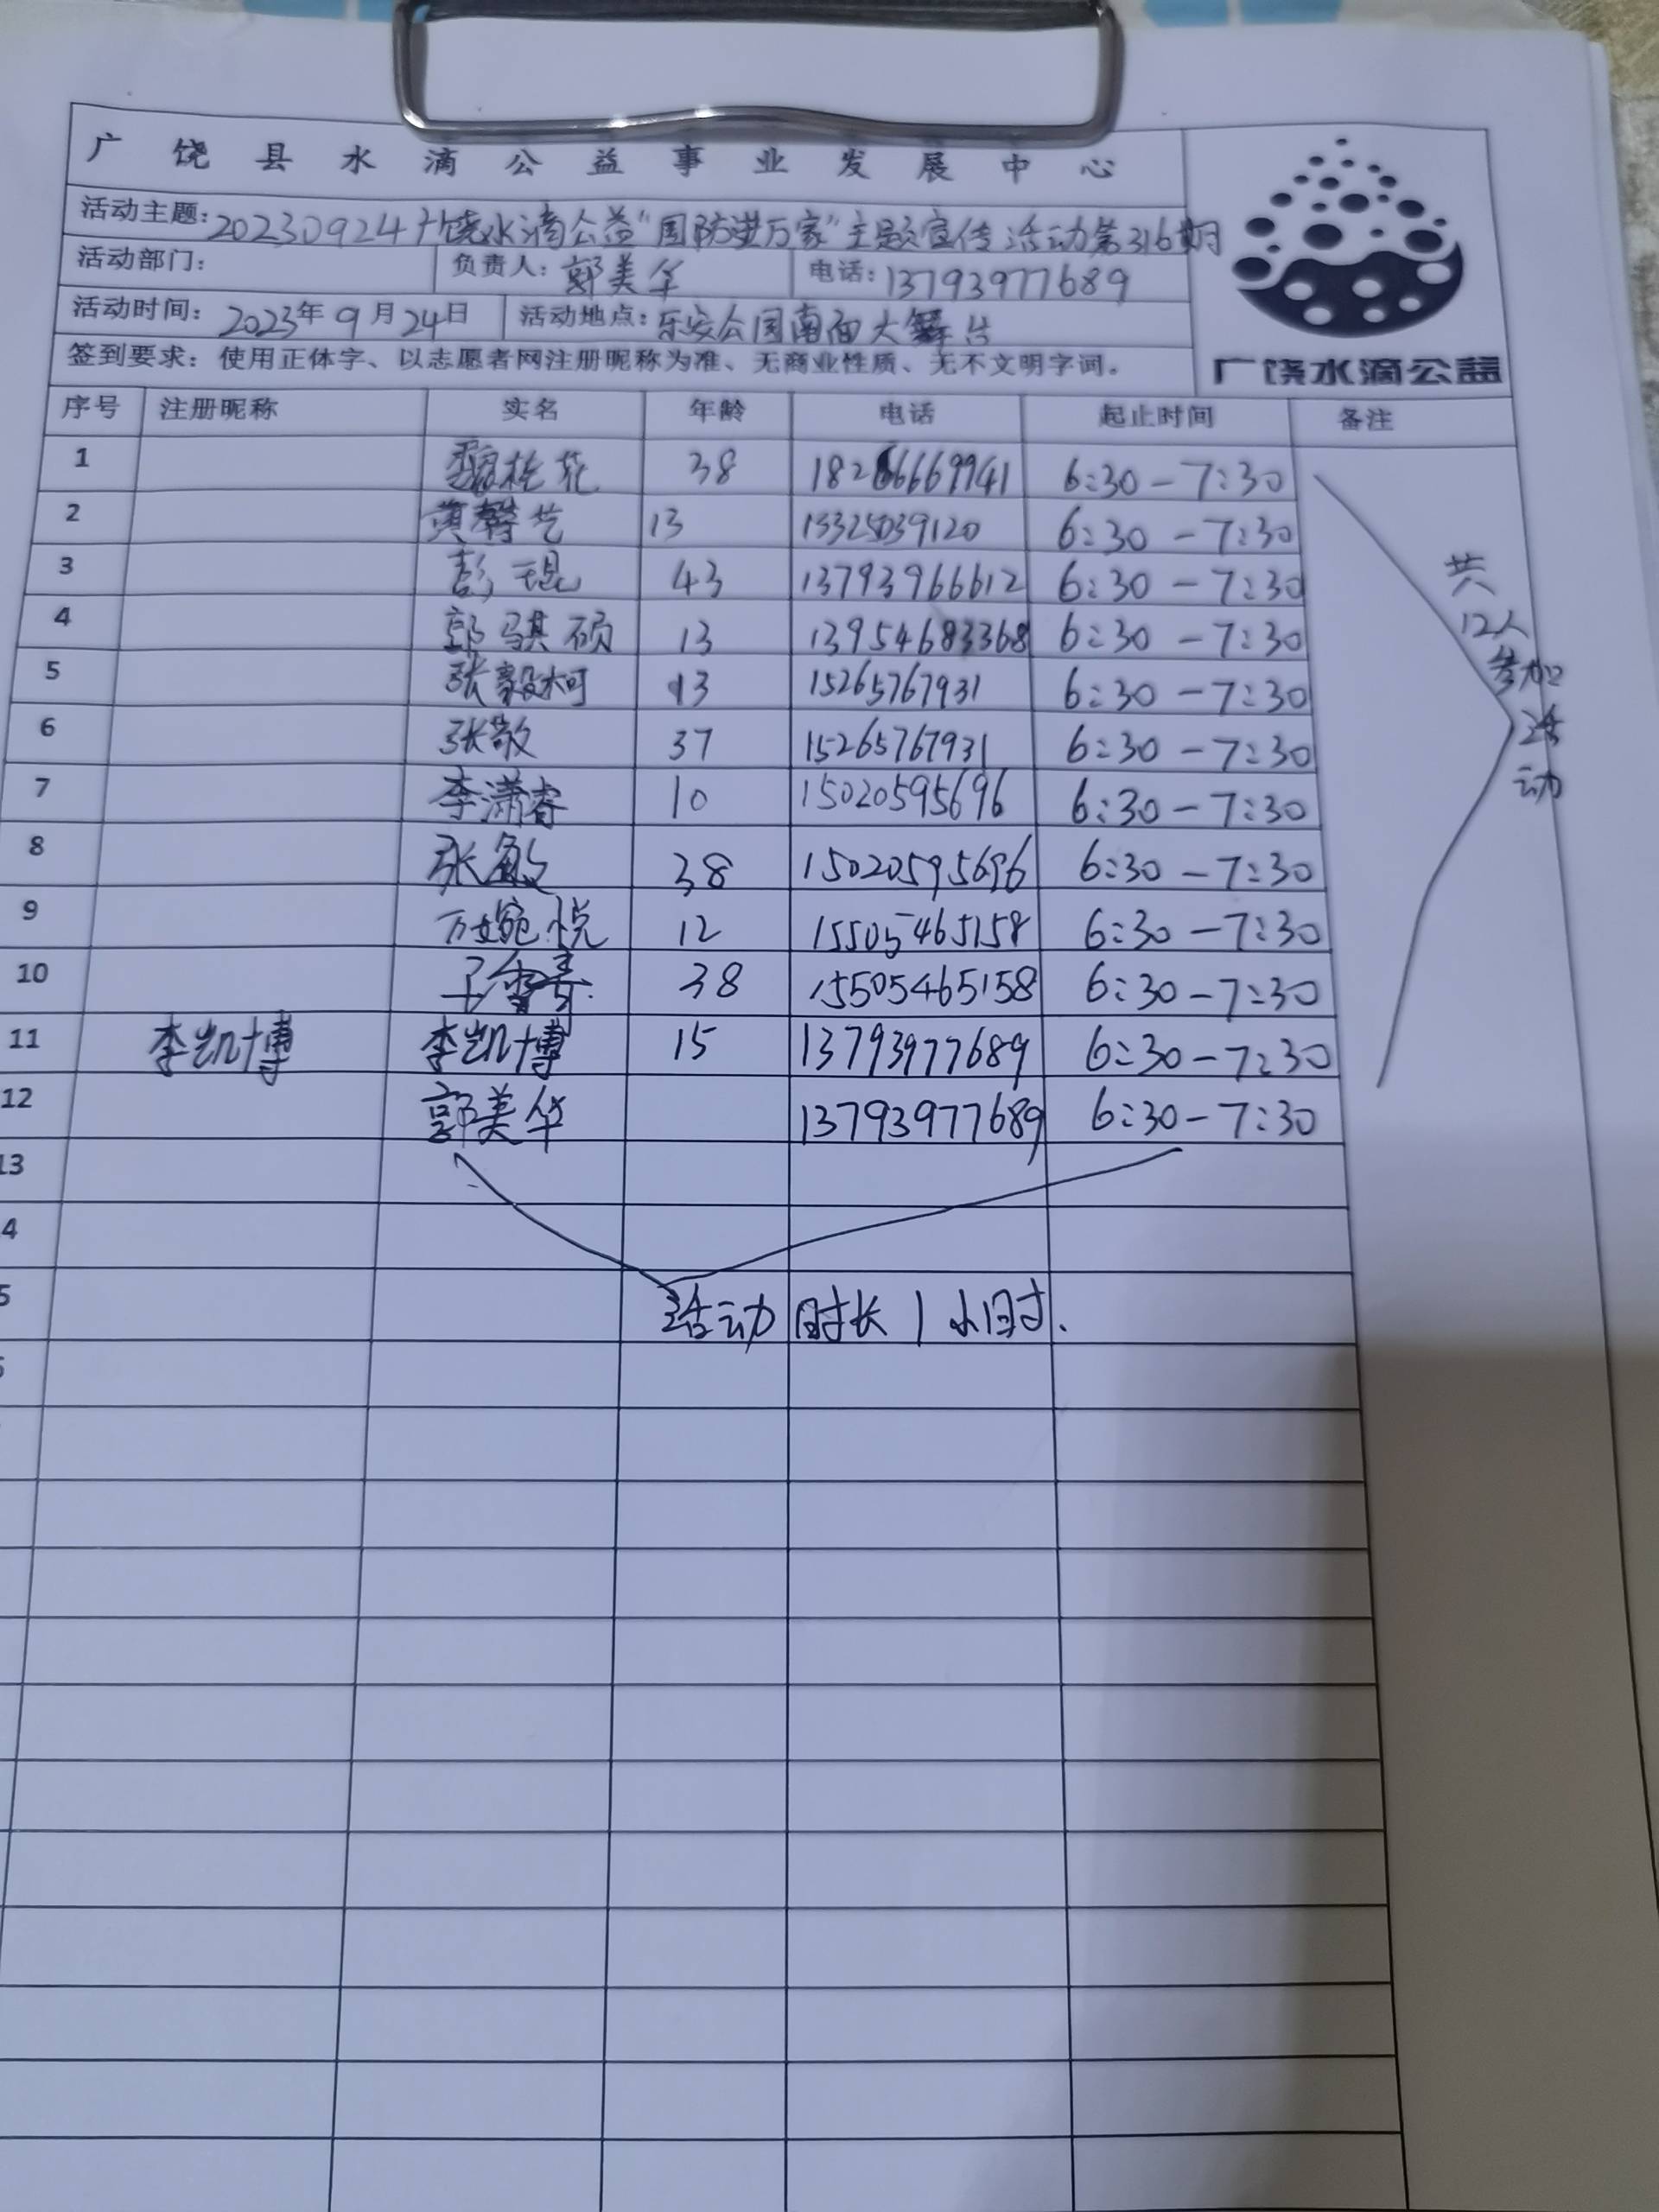 广饶县水滴公益事业发展中心
活动主题:20230924广饶水滴公益“国防进万家”主题宣传活动第316期
活动部门: 负责人:郭美华 电话:13793977689
活动时间:2023年9月24日 活动地点:乐安公园南面大舞台
签到要求:使用正体字、以志愿者网注册昵称为准、无商业性质、无不文明字词。
广饶水滴公益
序号 注册昵称 实名 年龄 电话 起止时间 备注
1 桂花 38 18266669941 6:30-7:30
2 黄馨艺 13 13325039120 6:30-7:30
3 彭琨 43 13793966612 6:30-7:30
4 郭骐硕 13 13954683368 6:30-7:30
5 张毅柯 13 15265767931 6:30-7:30
6 张敬 37 15265767931 6:30-7:30
7 李潇睿 10 15020595696 6:30-7:30
8 张敏 38 15020595696 6:30-7:30
9 万婉悦 12 15505465158 6:30-7:30
10 38 15505465158 6:30-7:30
11 李凯博 李凯博 15 13793977689 6:30-7:30
12 郭美华 13793977689 6:30-7:30
共
12人
参加
活
动
13
4
5 活动时长1小时.